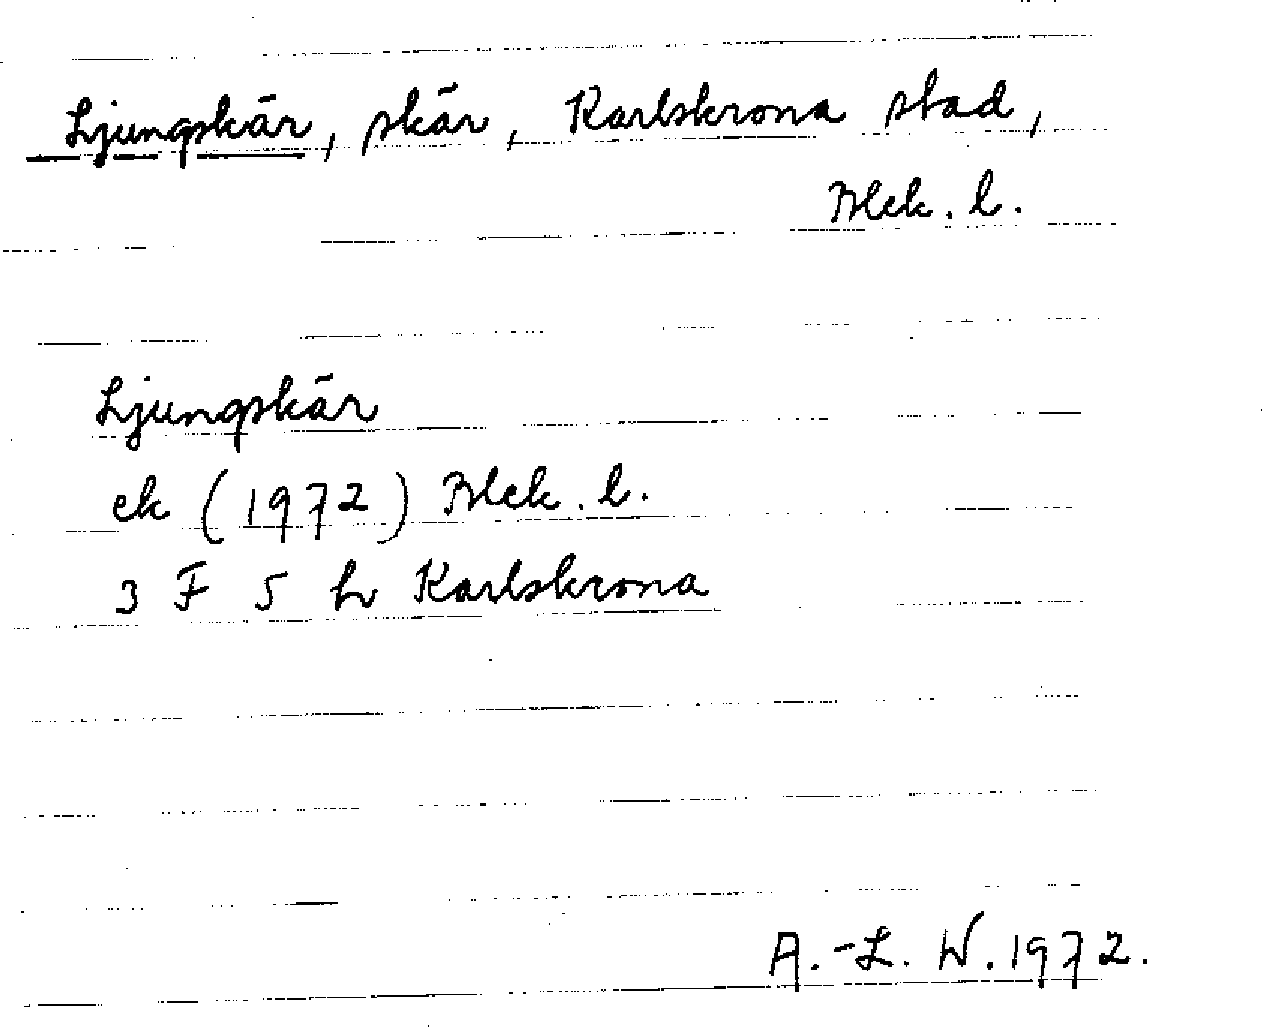 Ljungskär, skär, Karlskrona stad,
Blek. l.
Ljungskär
ek (1972) Blek. l.
3 F 5 h Karlskrona
A.-L. W. 1972.